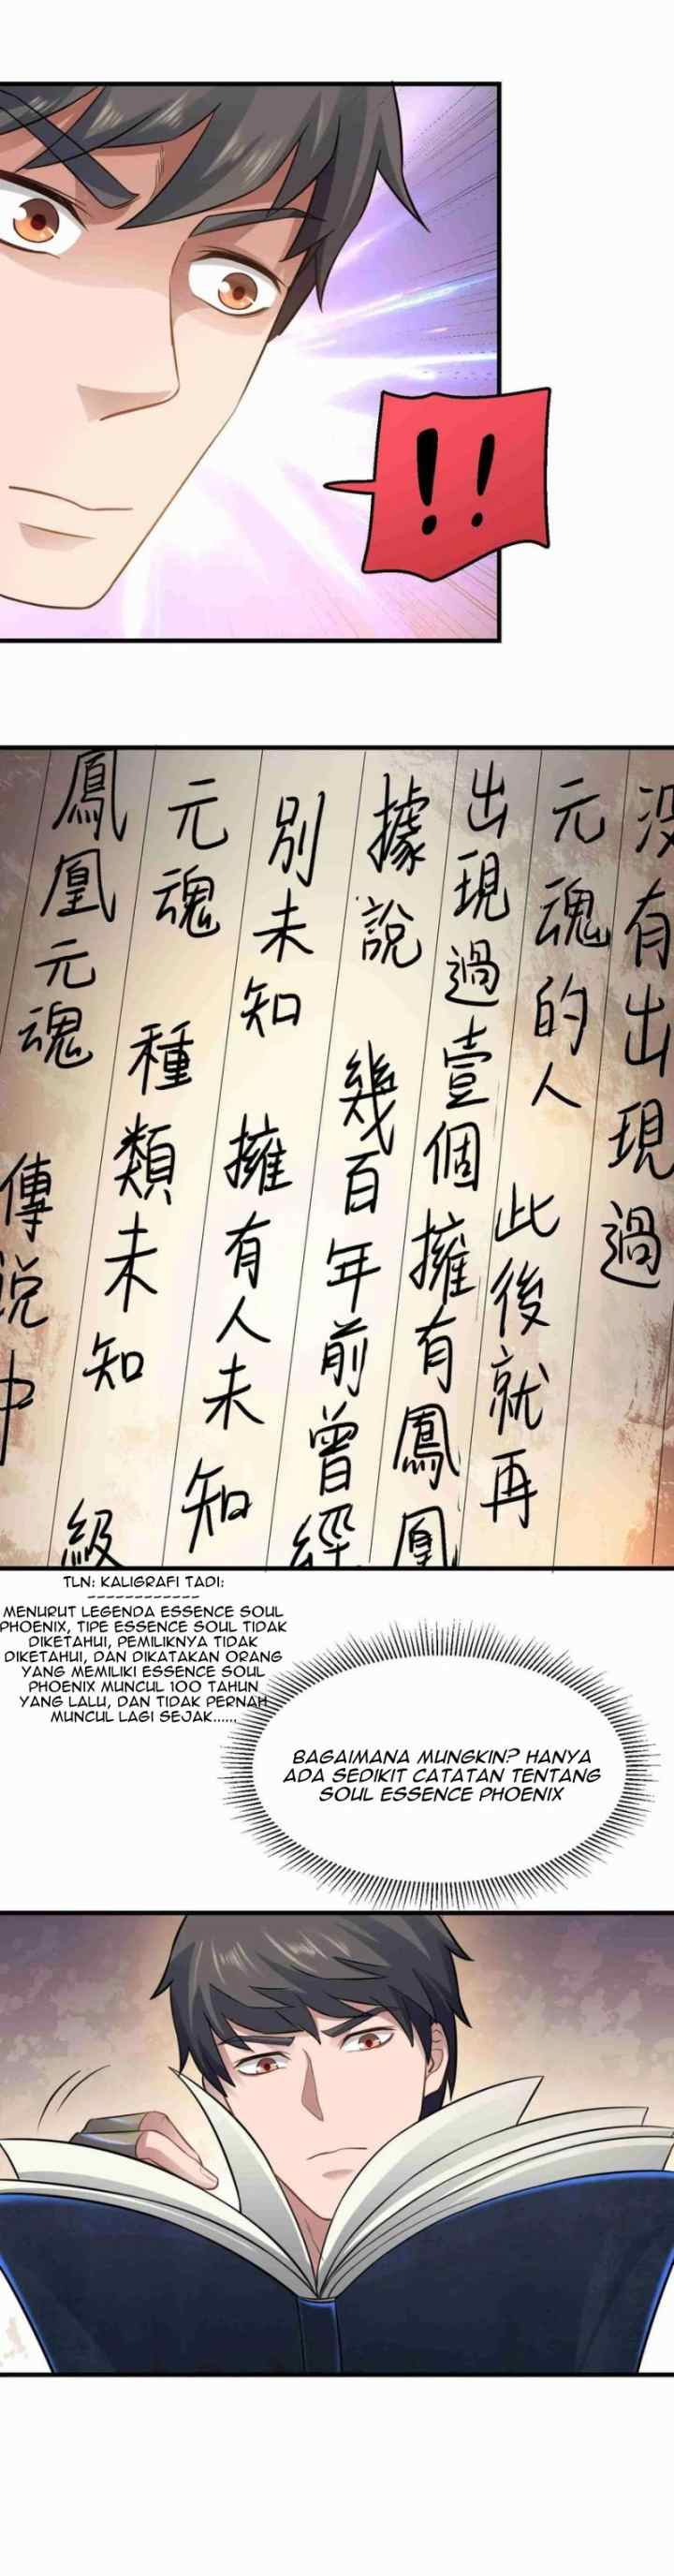 !!
鳳凰元魂 傳説中
元魂 種類未知 級
別未知 擁有人未知
據說 幾百年前曾經
出現過壹個擁有鳳凰
元魂的人 此後就再
没有出現過
TLN: KALIGRAFI TADI:
------------
MENURUT LEGENDA ESSENCE SOUL
PHOENIX, TIPE ESSENCE SOUL TIDAK
DIKETAHUI, PEMILIKNYA TIDAK
DIKETAHUI, DAN DIKATAKAN ORANG
YANG MEMILIKI ESSENCE SOUL
PHOENIX MUNCUL 100 TAHUN
YANG LALU, DAN TIDAK PERNAH
MUNCUL LAGI SEJAK......
BAGAIMANA MUNGKIN? HANYA
ADA SEDIKIT CATATAN TENTANG
SOUL ESSENCE PHOENIX